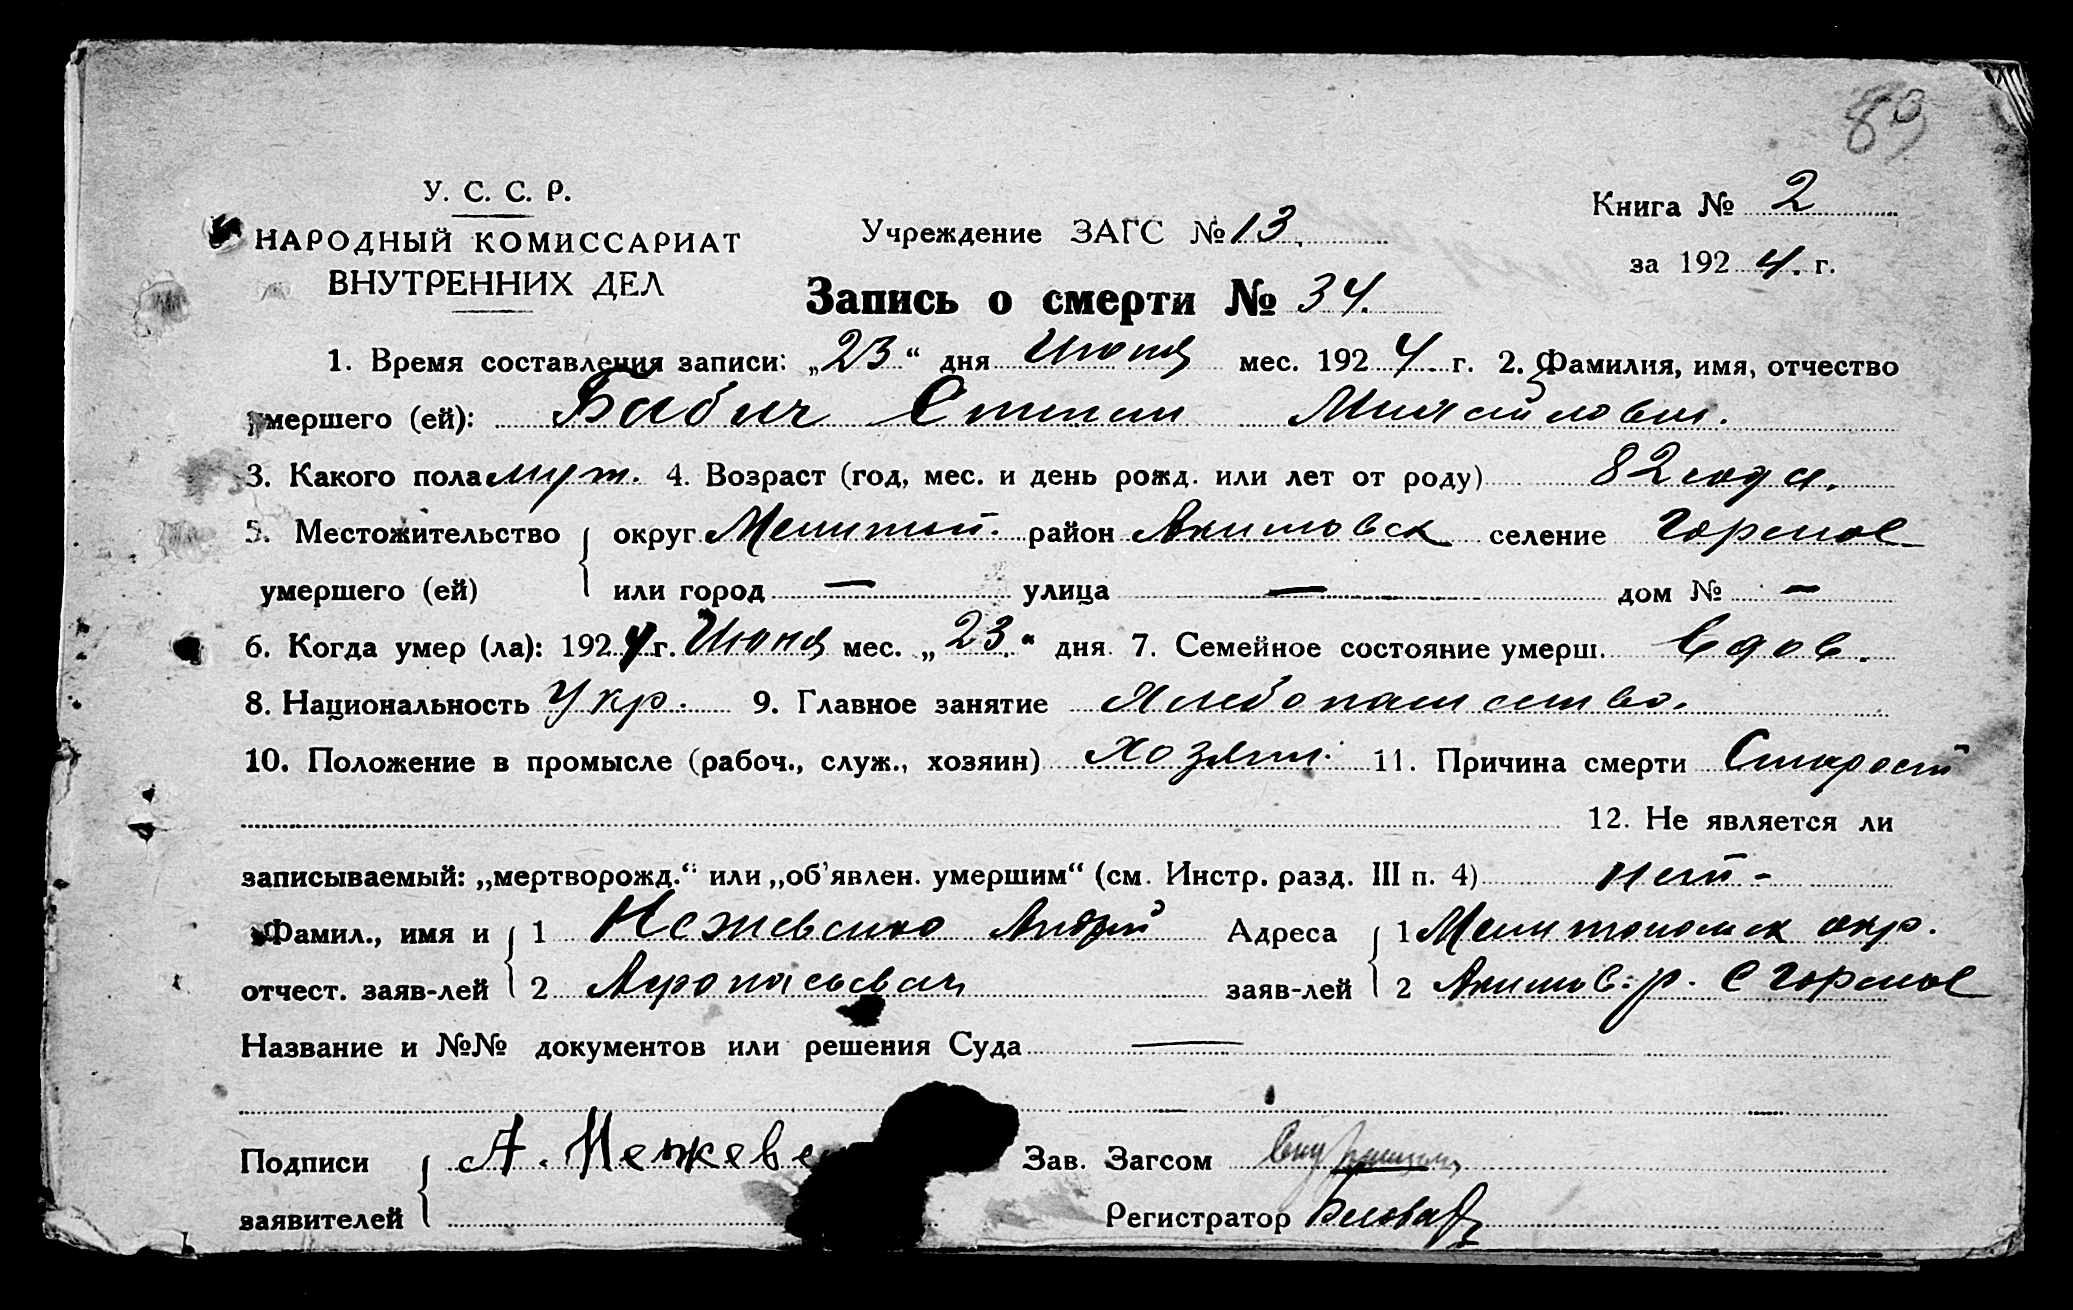 89
У. С. С. Р.
НАРОДНЫЙ КОМИССАРИАТ
ВНУТРЕННИХ ДЕЛ
Учреждение ЗАГС № 13.
Книга № 2
за 1924. г.
Запись о смерти № 34.
1. Время составления записи: „23“ дня Июня мес. 1924. г. 2. Фамилия, имя, отчество
умершего (ей): Бабич Степан Михайлович.
3. Какого пола муж. 4. Возраст (год, мес. и день рожд. или лет от роду) 82 года.
5. Местожительство округ Мелитоп. район Акимовск селение Горелое
умершего (ей) или город — улица — дом № —
6. Когда умер (ла): 1924 г. Июня мес. „23.“ дня 7. Семейное состояние умерш. вдов.
8. Национальность Укр. 9. Главное занятие Хлебопашество.
10. Положение в промысле (рабоч., служ., хозяин) хозяин. 11. Причина смерти Старост
12. Не является ли
записываемый: „мертворожд.“ или „об'явлен. умершим“ (см. Инстр. разд. III п. 4) нет -
Фамил., имя и 1 Нежевенко Андрей Адреса 1 Мелитопольск окр.
отчест. заяв-лей 2 заяв-лей 2 Акимов. р. С Горелое
Название и №№ документов или решения Суда —
Подписи А. Нежеве Зав. Загсом
заявителей Регистратор